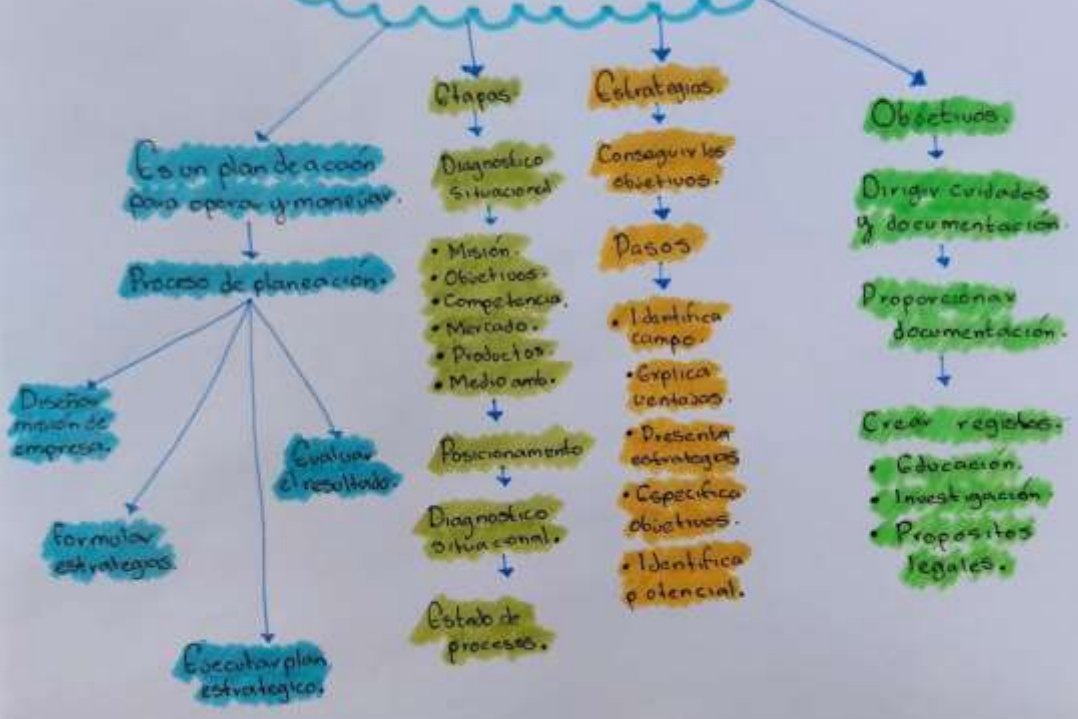 Es un plan de acción
para operar y manejar.
Proceso de planeación.
Diseñar
misión de
empresa.
Formular
estrategias.
Ejecutar plan
estrategico.
Evaluar
el resultado.
Etapas
Diagnostico
situacional
• Misión.
• Objetivos.
• Competencia.
• Mercado.
• Productos.
• Medio amb.
Posicionamento
Diagnostico
situacional.
Estado de
procesos.
Estrategias
Conseguir los
objetivos.
Pasos
• Identifica
campo.
• Explica
ventajas.
• Presenta
estrategas
• Especifica
objetivos.
• Identifica
potencial.
Objetivos.
Dirigir cuidados
y documentación.
Proporcionar
documentación.
Crear registros.
• Educación.
• Investigación
• Propositos
legales.